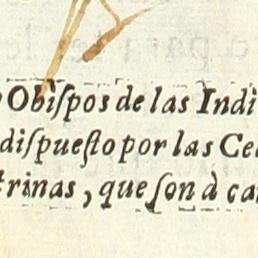 Obispos de las Indi
dispuesto por las Ce
trinas, que son à ca